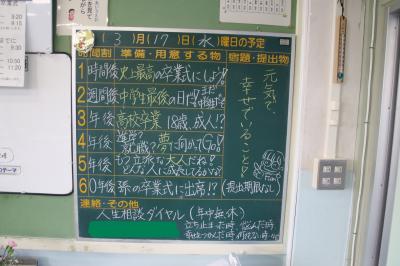 (3)月(17)日(水)曜日の予定
時間割 準備・用意する物 宿題・提出物
1 時間後 史上最高の卒業式にしよう!
2 週間後 中学生最後の日だ!
3 年後 高校卒業 18歳、成人!?
4 年後 進学?就職?夢に向かってGo!
5 年後 もう立派な大人だね!
6 0年後 孫の卒業式に出席!? (提出期限なし)
元気で、
幸せでいること!
連絡・その他
人生相談ダイヤル (年中無休)
立ち止まった時 悩んだ時
10:50
11:50